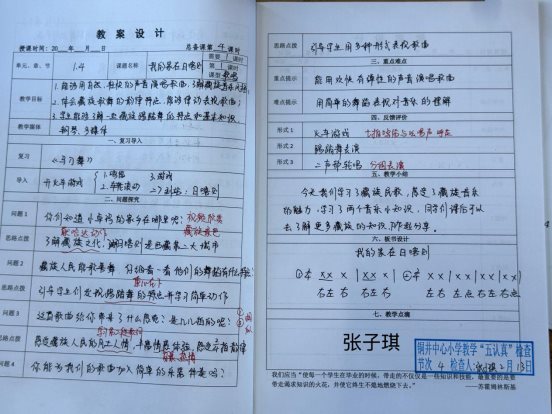 教案设计
授课时间：20 年 月 日 总备课第 4 课时
单元、章、节 1.4 课题名称 我的家在日喀则 需要 1 课时
第 1 课时
课型 歌唱
教学目标 1.能够用有力、轻快的声音演唱歌曲，了解藏族音乐风格；
2.体会藏族歌舞的韵律特点，能够律动表现歌曲；
3.学生能够了解一些藏族踢踏舞的特点和基本知识。
教学媒体 钢琴、多媒体
一、复习导入
复习 《 习舞》
导入 开火车游戏 1.唱谱 3.游戏
2.身势律动 二）到站：日喀则
二、问题探究
问题1 你们知道小卓玛的家乡在哪里呢？ 视频欣赏
藏族景色
思路点拨 了解藏族文化，湖日喀则是西藏第二大城市
问题2 藏族人民能歌善舞 仔细看一看他们的舞蹈有什么特点？
思路点拨 引导学生们发现踢踏舞的特点并学习简单动作
问题3 这首歌曲给你带来了什么感觉？是几几拍的呢？
思路点拨 感受藏族人民的风土人情
问题4 你能为我们的歌曲加入简单的乐器伴奏吗？
思路点拨 引导学生用多种形式表现歌曲
三、重点难点
重点提示 能用欢快有弹性的声音演唱歌曲
难点提示 用简单的舞蹈表现对音乐的理解
四、反馈评价
形式1 火车游戏
形式2 踢踏舞表演
形式3 二声部轮唱 分组表演
五、教学小结
今天我们学习了藏族民歌，感受了藏族音乐
的魅力，学习了两个音乐小知识，同学们课后可以
去了解更多藏族的知识，跟大家分享。
六、板书设计
我的家在日喀则
① X X | X X X
右左右 右左右
② X X | X X | X X | X X |
左右 左点右 左点右点
七、教学点滴
张子琪
铜井中心小学教学“五认真”检查
节次 4 检查人： 2月13日
我们应当“使每一个学生在毕业的时候，带走的不仅仅是一些知识和技能，最重要的是要
带走渴求知识的火花，并使它终生不熄地燃烧下去。”
——苏霍姆林斯基